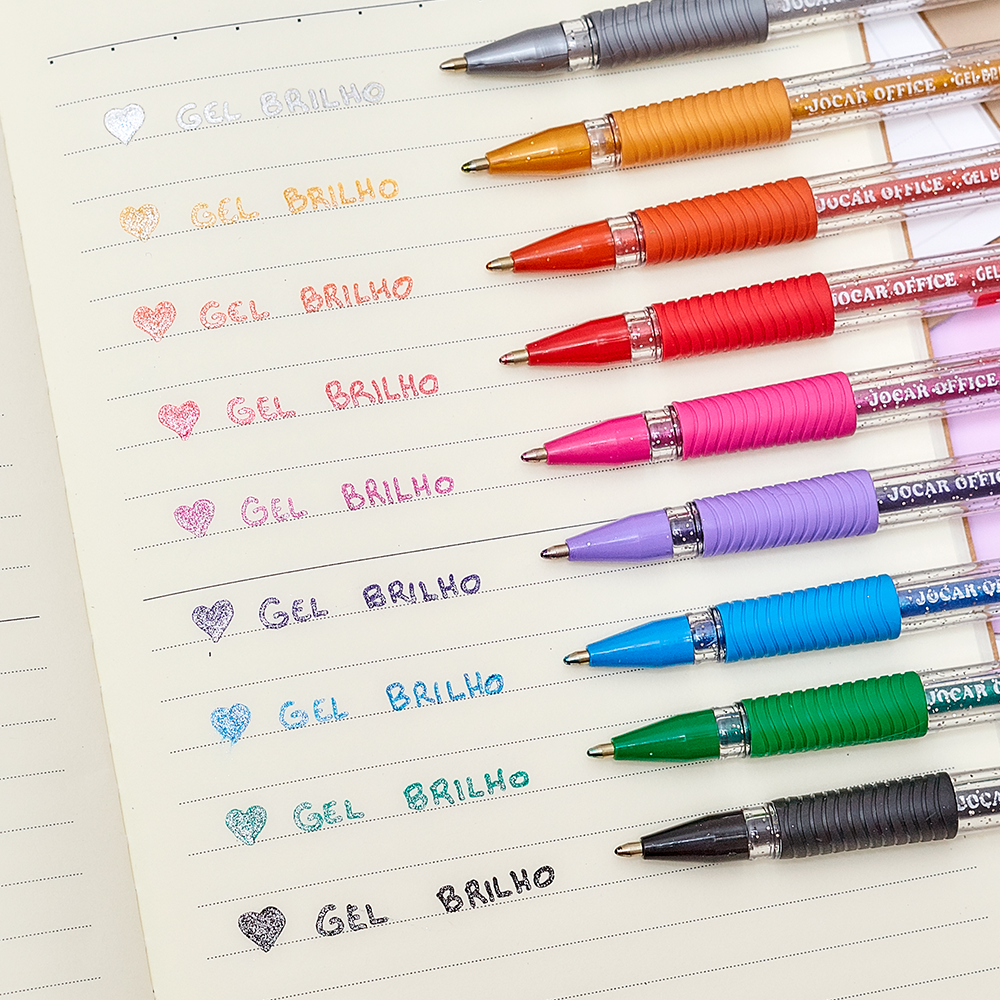 GEL BRILHO
JOCAR OFFICE · GEL BRI
GEL BRILHO
JOCAR OFFICE · GEL B
GEL BRILHO
JOCAR OFFICE · GEL
GEL BRILHO
JOCAR OFFICE
GEL BRILHO
JOCAR OFFIC
GEL BRILHO
JOCAR OF
GEL BRILHO
JOCAR O
GEL BRILHO
JOCA
GEL BRILHO